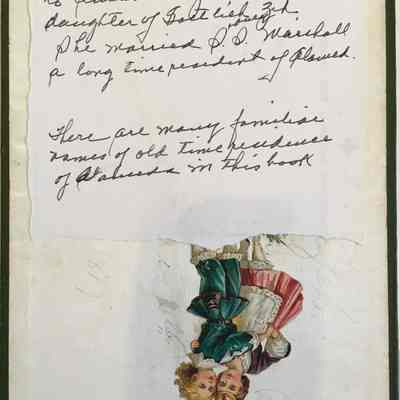 daughter of Gottlieb
She married S. S. Marshall
a long time resident of Alamed.
There are many familiar
names of old time residence
of Alameda in this book